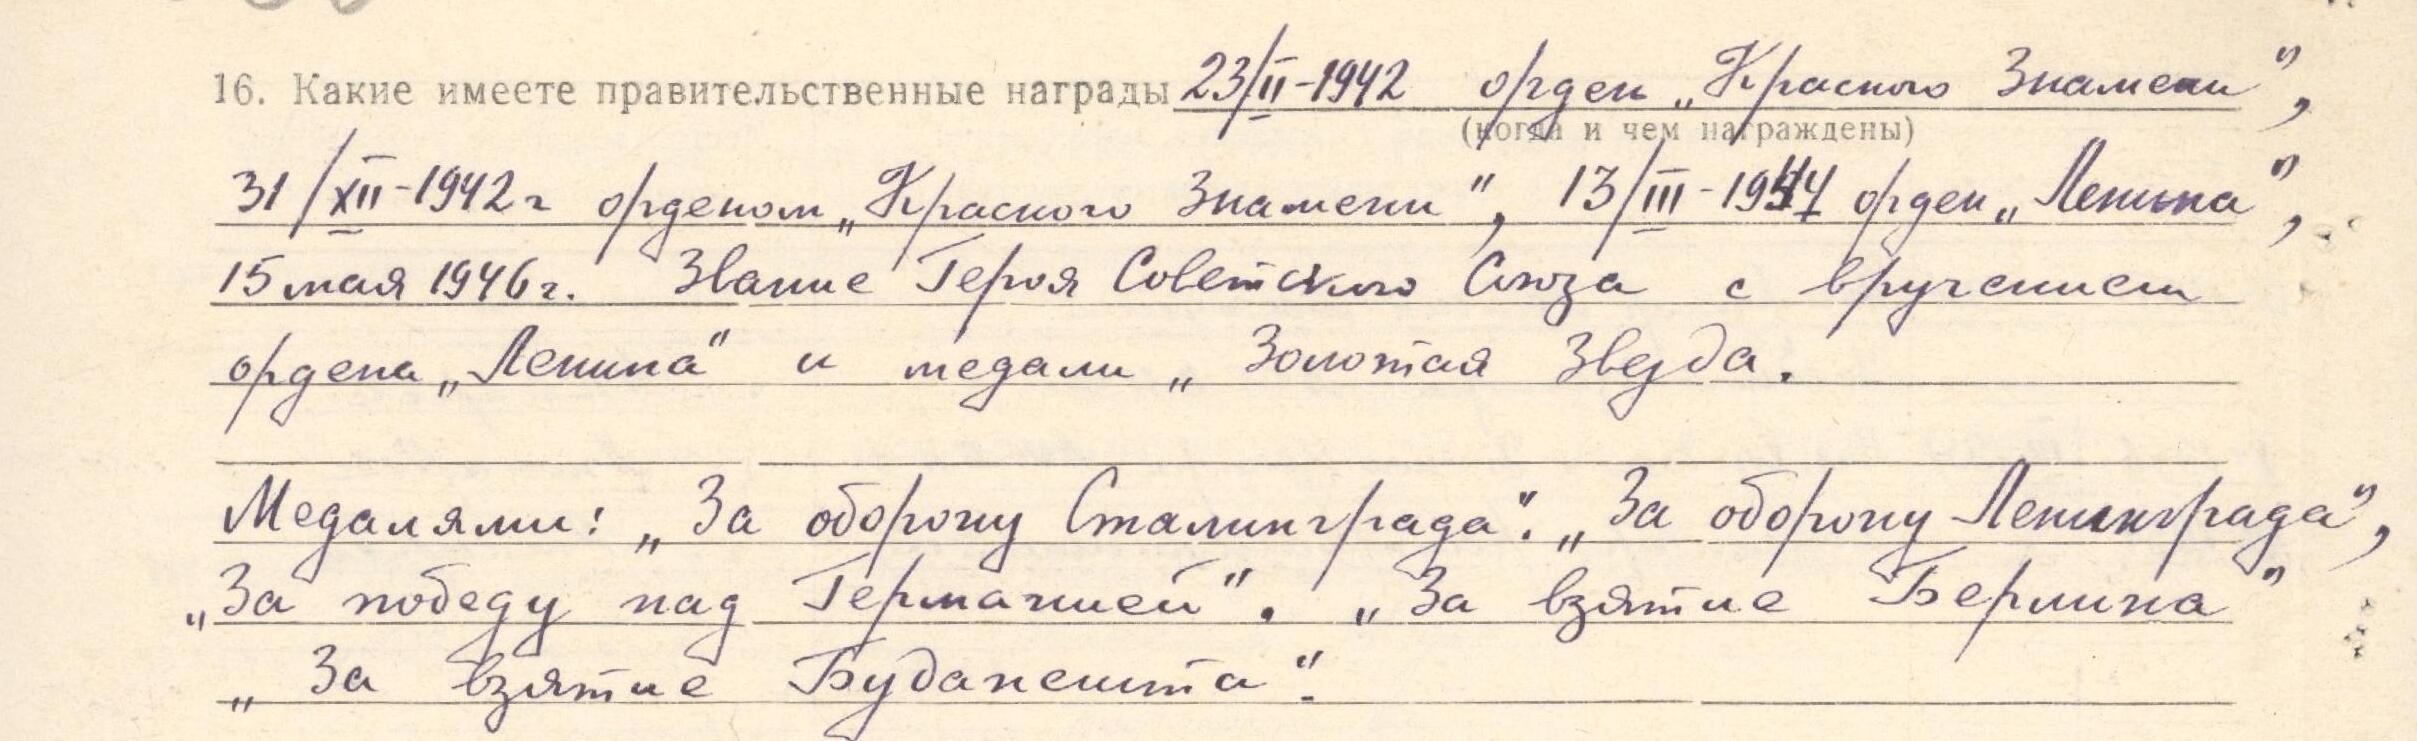 16. Какие имеете правительственные награды 23/II-1942 орден „Красного Знамени",
(когда и чем награждены)
31/XII-1942г орденом „Красного Знамени", 13/III-1944 орден „Ленина",
15 мая 1946г. Звание Героя Советского Союза с вручением
ордена „Ленина" и медали „Золотая Звезда.
Медалями: „За оборону Сталинграда". „За оборону Ленинграда",
„За победу над Германией". „За взятие Берлина"
„За взятие Будапешта".